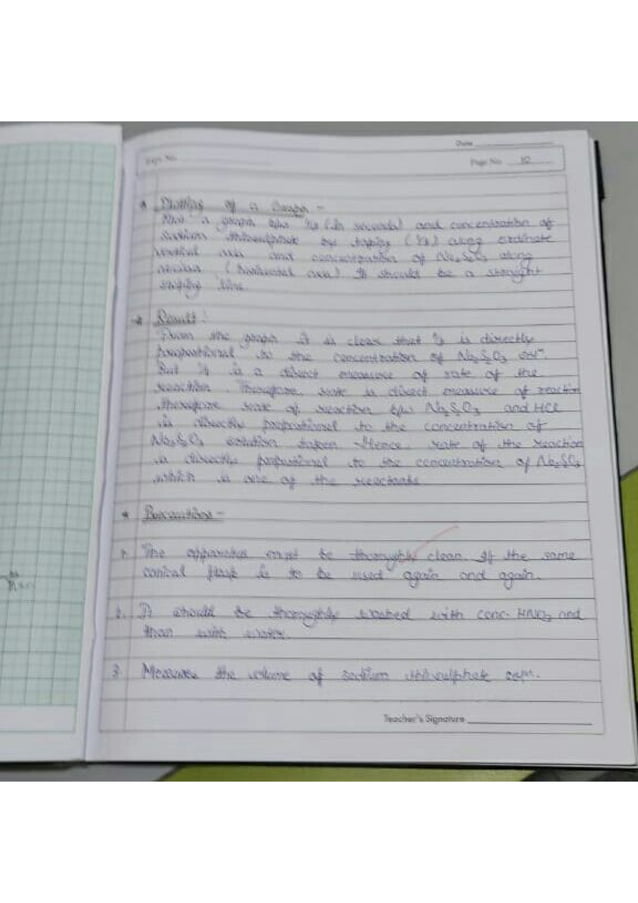 Date
Expt. No.
Page No. 10
* Plotting of a Graph -
Plot a graph b/w 1/t (in seconds) and concentration of
sodium thiosulphate by taking (1/t) along ordinate
vertical axis and concentration of Na2S2O3 along
(horizontal axis) It should be a straight
line.
* Result :
From the graph it is clear that 1/t is directly
proportional to the concentration of Na2S2O3 solⁿ.
But 1/t is a direct measure of rate of the
reaction. Therefore, rate is direct measure of reaction
therefore rate of reaction b/w Na2S2O3 and HCl
is directly proportional to the concentration of
Na2S2O3 solution taken. Hence rate of the reaction
is directly proportional to the concentration of Na2S2O3
which is one of the reactants
* Precautions -
1. The apparatus must be thoroughly clean. If the same
conical flask is to be used again and again.
2. It should be thoroughly washed with conc. HNO3 and
than with water.
3. Measures the volume of sodium thiosulphate
Teacher's Signature